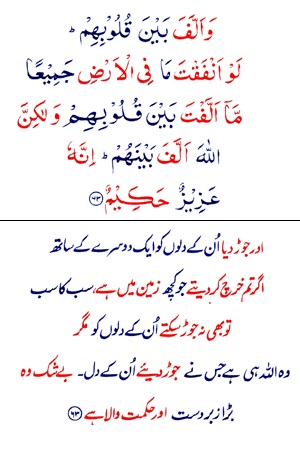 وَاَلَّفَ بَيْنَ قُلُوْبِهِمْ ؕ
لَوْ اَنْفَقْتَ مَا فِي الْاَرْضِ جَمِيْعًا
مَّاۤ اَلَّفْتَ بَيْنَ قُلُوْبِهِمْ وَلٰكِنَّ
اللّٰهَ اَلَّفَ بَيْنَهُمْ ؕ اِنَّهٗ
عَزِيْزٌ حَكِيْمٌ ﴿۶۳﴾
اور جوڑ دیا اُن کے دلوں کو ایک دوسرے کے ساتھ
اگر تم خرچ کر دیتے جو کچھ زمین میں ہے، سب کا سب
تو بھی نہ جوڑ سکتے اُن کے دلوں کو مگر
وہ اللہ ہی ہے جس نے جوڑ دیئے اُن کے دل۔ بے شک وہ
بڑا زبردست اور حکمت والا ہے ﴿۶۳﴾